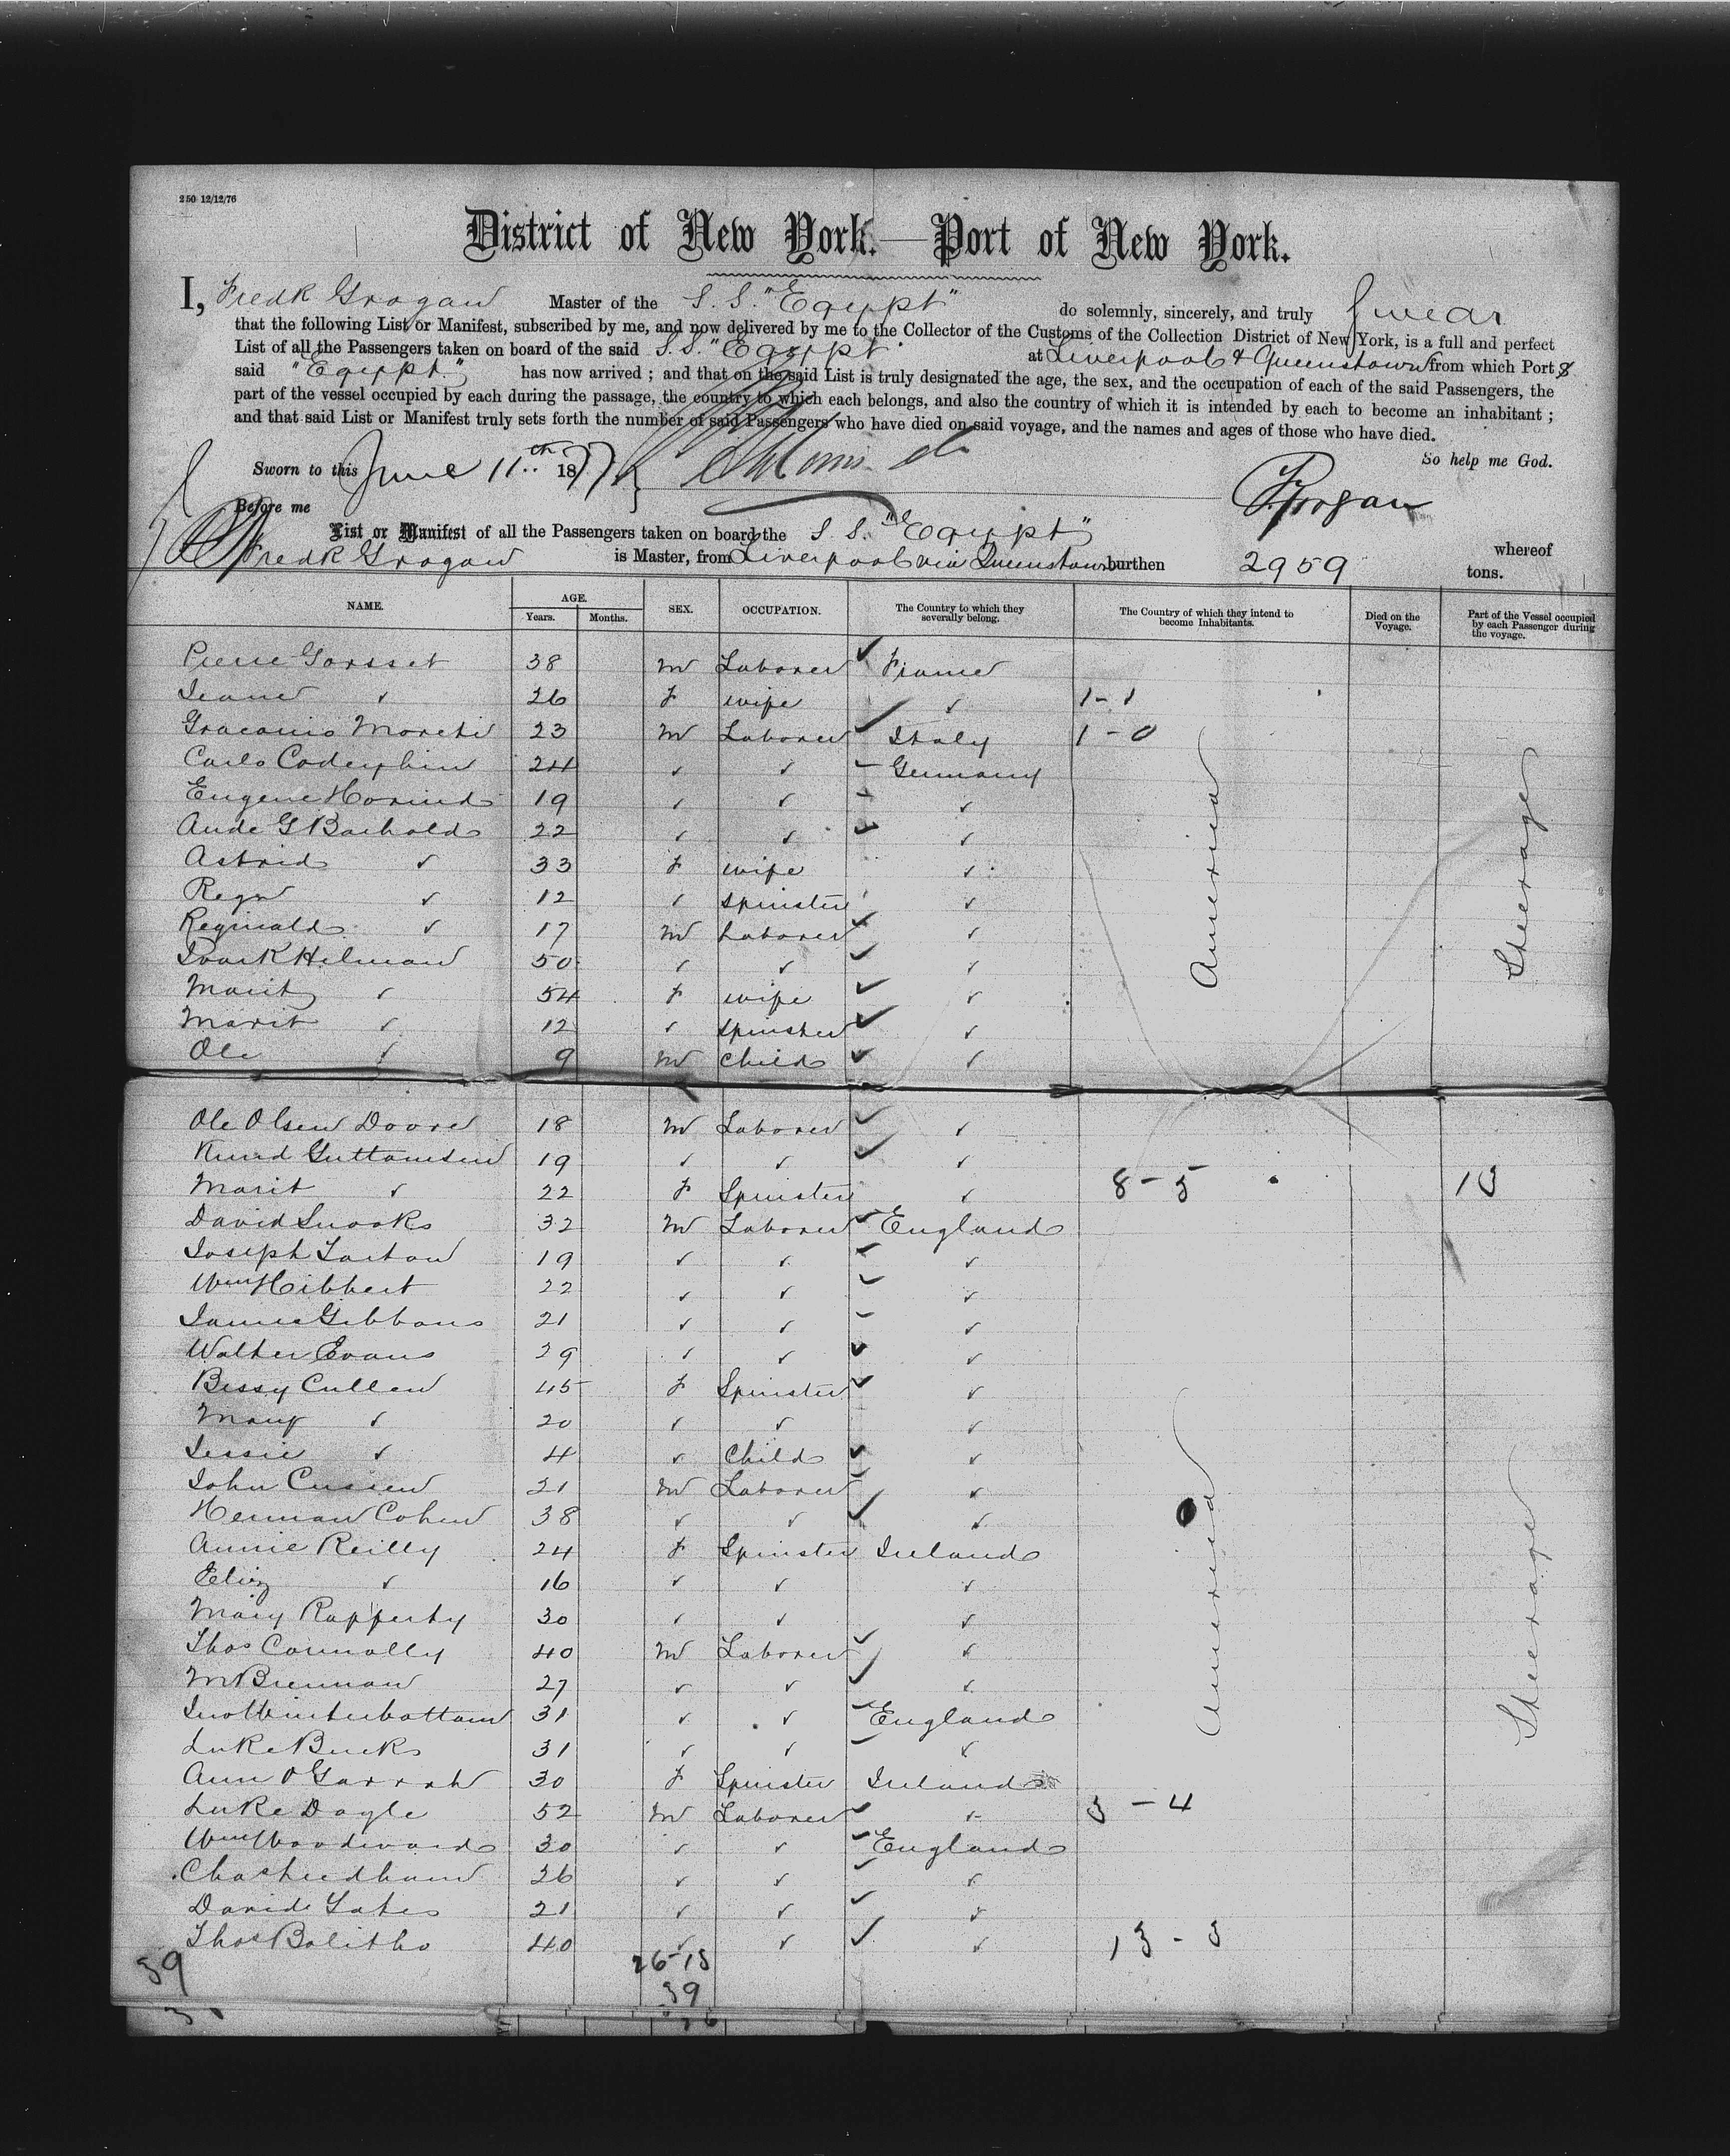 250 12/12/76
District of New York.—Port of New York.
I, Fredk Grogan Master of the S.S. "Egypt" do solemnly, sincerely, and truly swear
that the following List or Manifest, subscribed by me, and now delivered by me to the Collector of the Customs of the Collection District of New York, is a full and perfect
List of all the Passengers taken on board of the said S.S. "Egypt" at Liverpool & Queenstown from which Port s
said "Egypt" has now arrived ; and that on the said List is truly designated the age, the sex, and the occupation of each of the said Passengers, the
part of the vessel occupied by each during the passage, the country to which each belongs, and also the country of which it is intended by each to become an inhabitant ;
and that said List or Manifest truly sets forth the number of said Passengers who have died on said voyage, and the names and ages of those who have died.
So help me God.
Sworn to this June 11th 1877
F Grogan
Before me
List or Manifest of all the Passengers taken on board the S.S. "Egypt" whereof
Fredk Grogan is Master, from Liverpool via Queenstown burthen 2959 tons.
NAME. AGE. Years. Months. SEX. OCCUPATION. The Country to which they severally belong. The Country of which they intend to become Inhabitants. Died on the Voyage. Part of the Vessel occupied by each Passenger during the voyage.
Pierre 38 M Laborer ✓ France
Jeanne ✓ 26 F wife ✓ 1-1
23 M Laborer ✓ Italy 1-0
Carlo 24 ✓ ✓ - Germany
Eugene 19 ✓ ✓ - ✓
22 ✓ ✓ ✓ ✓
Astrid ✓ 33 F wife ✓
✓ 12 ✓ spinster ✓
Reginald ✓ 17 M Laborer ✓ ✓
50 ✓ ✓ ✓ ✓
Marit ✓ 54 F wife ✓ ✓
Marit ✓ 12 ✓ spinster ✓ ✓
Ole ✓ 9 M Child ✓ ✓
America Steerage
Ole Olsen 18 M Laborer ✓ ✓
Knud Guttomsen 19 ✓ ✓ ✓ ✓
Marit ✓ 22 F Spinster ✓ 8-5 13
David Snooks 32 M Laborer ✓ England
Joseph 19 ✓ ✓ ✓ ✓
Wm Hibbert 22 ✓ ✓ ✓ ✓
James Gibbons 21 ✓ ✓ - ✓
Walter Evans 29 ✓ ✓ ✓ ✓
Bessy Cullen 45 F Spinster ✓ ✓
Mary ✓ 20 ✓ ✓ ✓
Jessie ✓ 4 ✓ Child ✓ ✓
John 21 M Laborer ✓ ✓
Herman Cohen 38 ✓ ✓ ✓ ✓
Annie Reilly 24 F Spinster Ireland
Eliz ✓ 16 ✓ ✓ ✓
Mary Rafferty 30 ✓ ✓ ✓
Thos Connolly 40 M Laborer ✓ ✓
M Brennan 27 ✓ ✓ ✓ ✓
Jno Winterbottom 31 ✓ ✓ - England
Luke Bucks 31 ✓ ✓ - ✓
Ann O Garrah 30 F Spinster Ireland
Luke Dogle 52 M Laborer ✓ ✓ 3-4
Wm Woodward 30 ✓ ✓ ✓ England
Chas Needham 26 ✓ ✓ ✓ ✓
David Yates 21 ✓ ✓ ✓ ✓
Thos Bolitho 40 ✓ ✓ ✓ ✓ 13-0
America Steerage
39 26-13
39